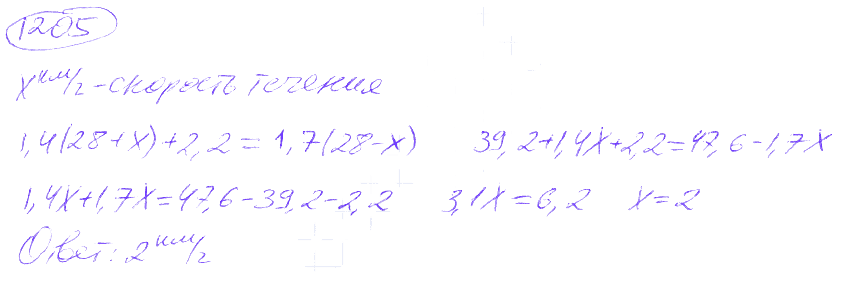 1205
x км/ч - скорость течения
1,4(28+x)+2,2=1,7(28-x) 39,2+1,4x+2,2=47,6-1,7x
1,4x+1,7x=47,6-39,2-2,2 3,1x=6,2 x=2
Ответ: 2 км/ч